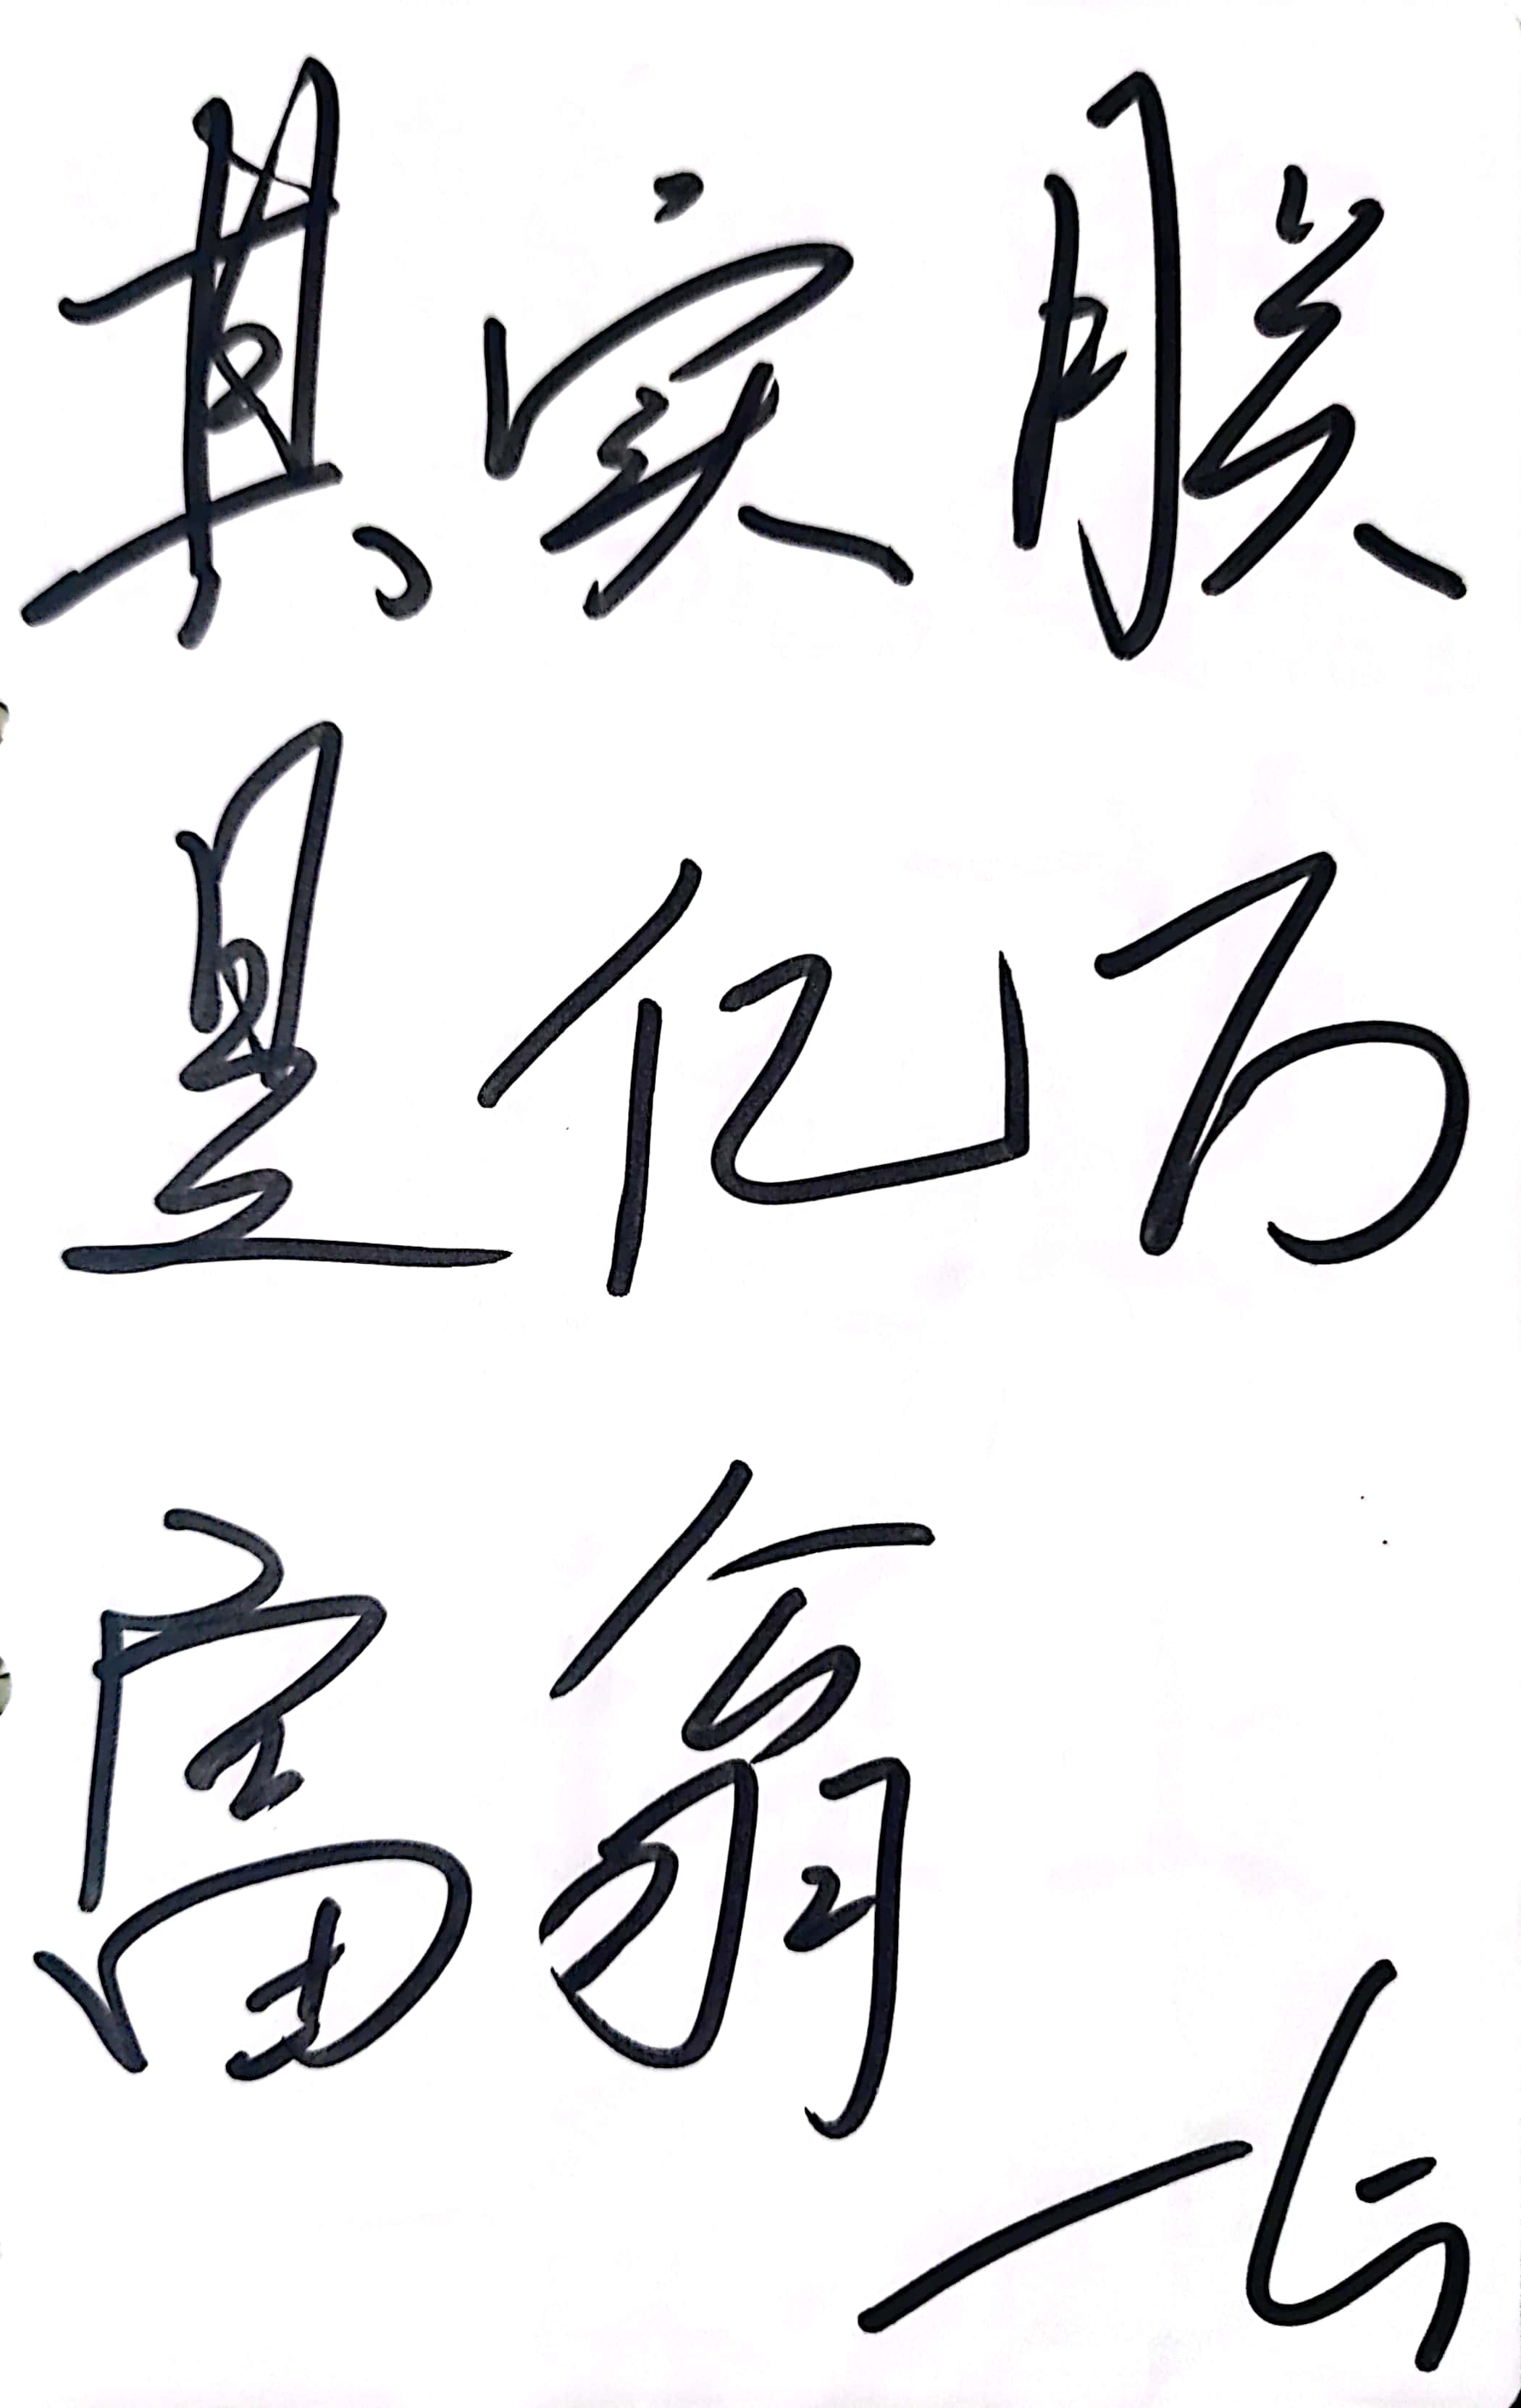 其实朕
是亿万
富翁